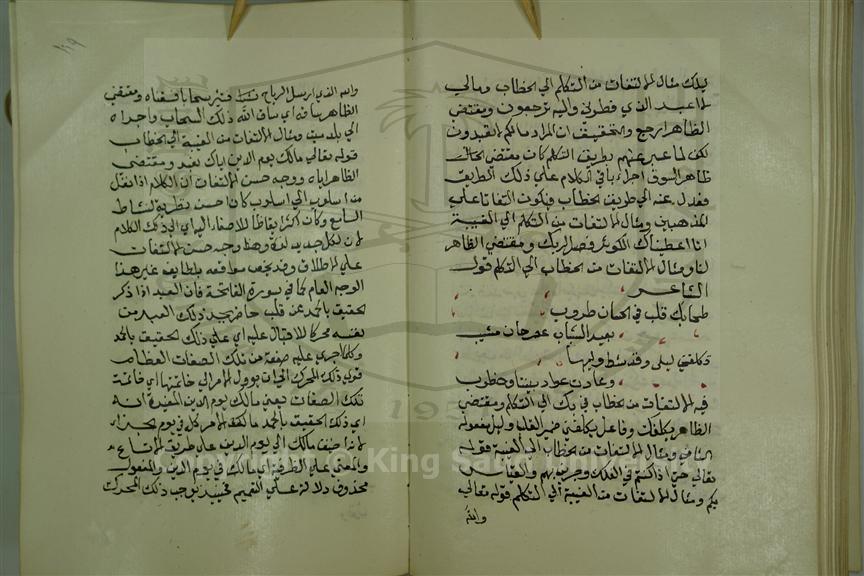 ليلك مثال الالتفات من التكلم الى الخطاب ومالي
لا اعبد الذي فطرني واليه ترجعون ومقتضى
الظاهر ارجع والتحقيق ان المراد مالكم لا تعبدون
لكن لما عبر عنهم بطريق التكلم كان مقتضى
ظاهر السوق اجراء باقي الكلام على ذلك الطريق
فعدل عنه الى طريق الخطاب فيكون التفاتا على
المذهبين ومثال الالتفات من التكلم الى الغيبة
انا اعطيناك الكوثر فصل لربك ومقتضى الظاهر
لنا ومثال الالتفات من الخطاب الى التكلم قول
الشاعر
طحابك قلب في الحسان طروب
بعيد الشباب عصر حان مشيب
تكلفني ليلى وقد شط وليها
وعادت عواد بيننا وخطوب
فيه الالتفات من الخطاب في بك الى التكلم ومقتضى
الظاهر يكلفك وفاعل يكلفني ضمير القلب وليلى مفعوله
الثاني ومثال الالتفات من الخطاب الى الغيبة قوله
تعالى حتى اذا كنتم في الفلك وجرين بهم والقياس
بكم ومثال الالتفات من الغيبة الى التكلم قوله تعالى
والله
١٠٩
والله الذي ارسل الرياح فتثير سحابا فسقناه ومقتضى
الظاهر ساقه اي ساق الله ذلك السحاب واجراه
الى بلد ميت ومثال الالتفات من الغيبة الى الخطاب
قوله تعالى مالك يوم الدين اياك نعبد ومقتضى
الظاهر اياه ووجه حسن الالتفات ان الكلام اذا نقل
من اسلوب الى اسلوب كان احسن تطرية لنشاط
السامع وكان اكثر ايقاظا للاصغاء اليه اي الى ذلك الكلام
لان لكل جديد لذة وهذا وجه حسن الالتفات
على الاطلاق وقد يختص مواقعه بلطايف غير هذا
الوجه العام كما في سورة الفاتحة فان العبد اذا ذكر
الحقيق بالحمد عن قلب حاضر يجد ذلك العبد من
نفسه محركا للاقبال عليه اي على ذلك الحقيق بالحمد
وكلما اجرى عليه صفة من تلك الصفات العظام
قوي ذلك المحرك الى ان يؤول الامر الى خاتمتها اي خاتمة
تلك الصفات يعني مالك يوم الدين المفيدة انه
اي ذلك الحقيق بالحمد مالك الامر كله في يوم الجزاء
لانه اضيف مالك الى يوم الدين على طريق الاتساع
والمعنى على الظرفية اي مالك في يوم الدين والمفعول
محذوف دلالة على التعميم فحينئذ يوجب ذلك المحرك
Copyright © King Saud University
1957